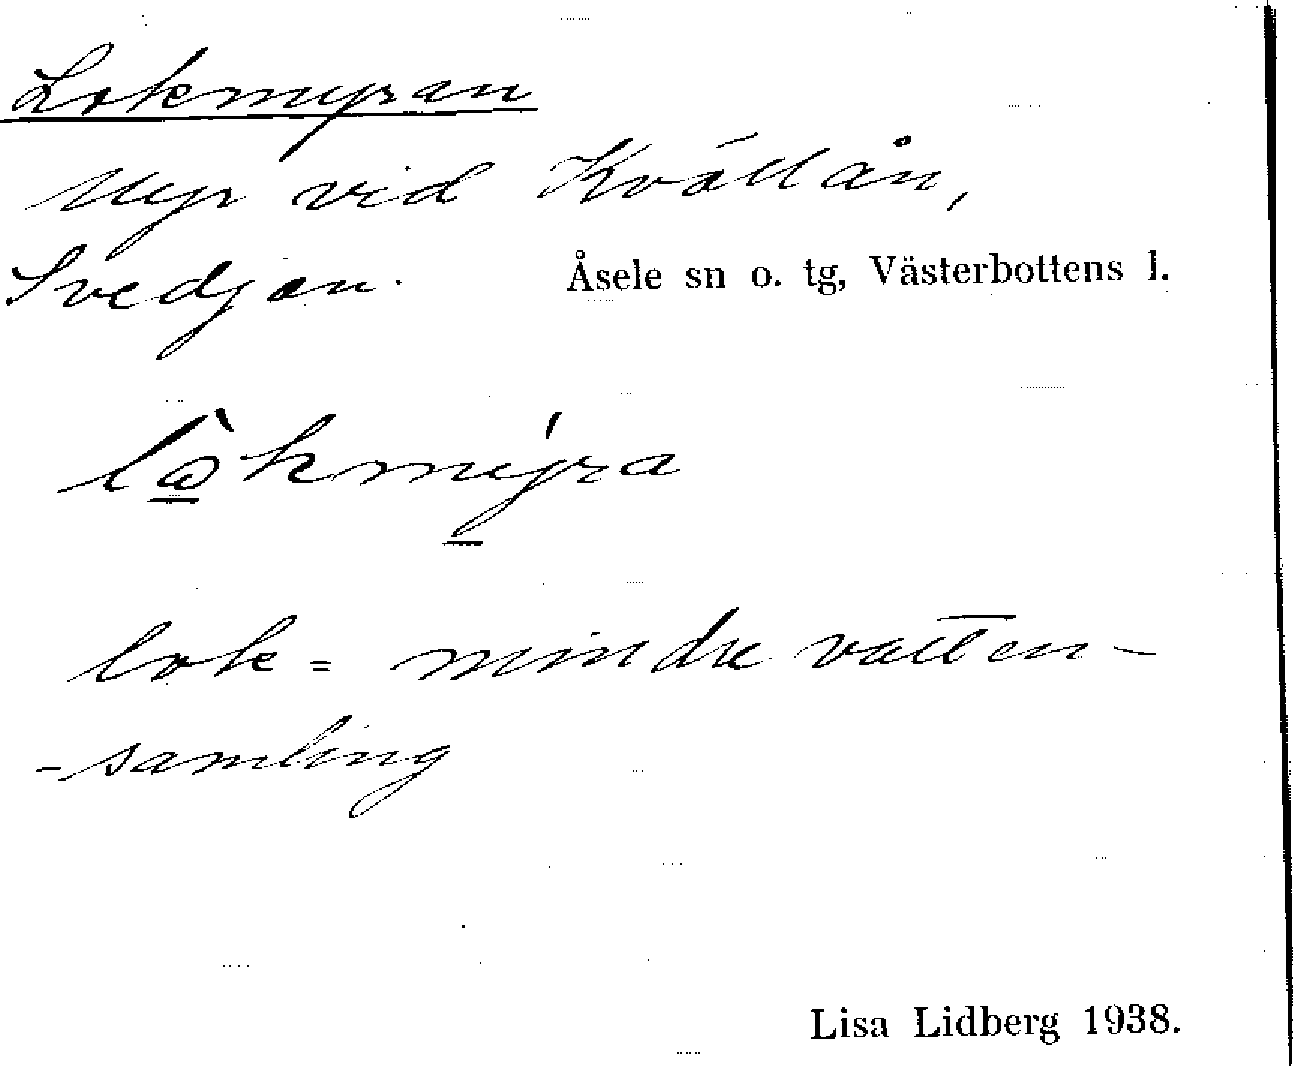 Lokmyran
Myr vid Kvällån,
Svedjan. Åsele sn o. tg, Västerbottens l.
lò̱kmýra
lok = mindre vatten-
-samling
Lisa Lidberg 1938.